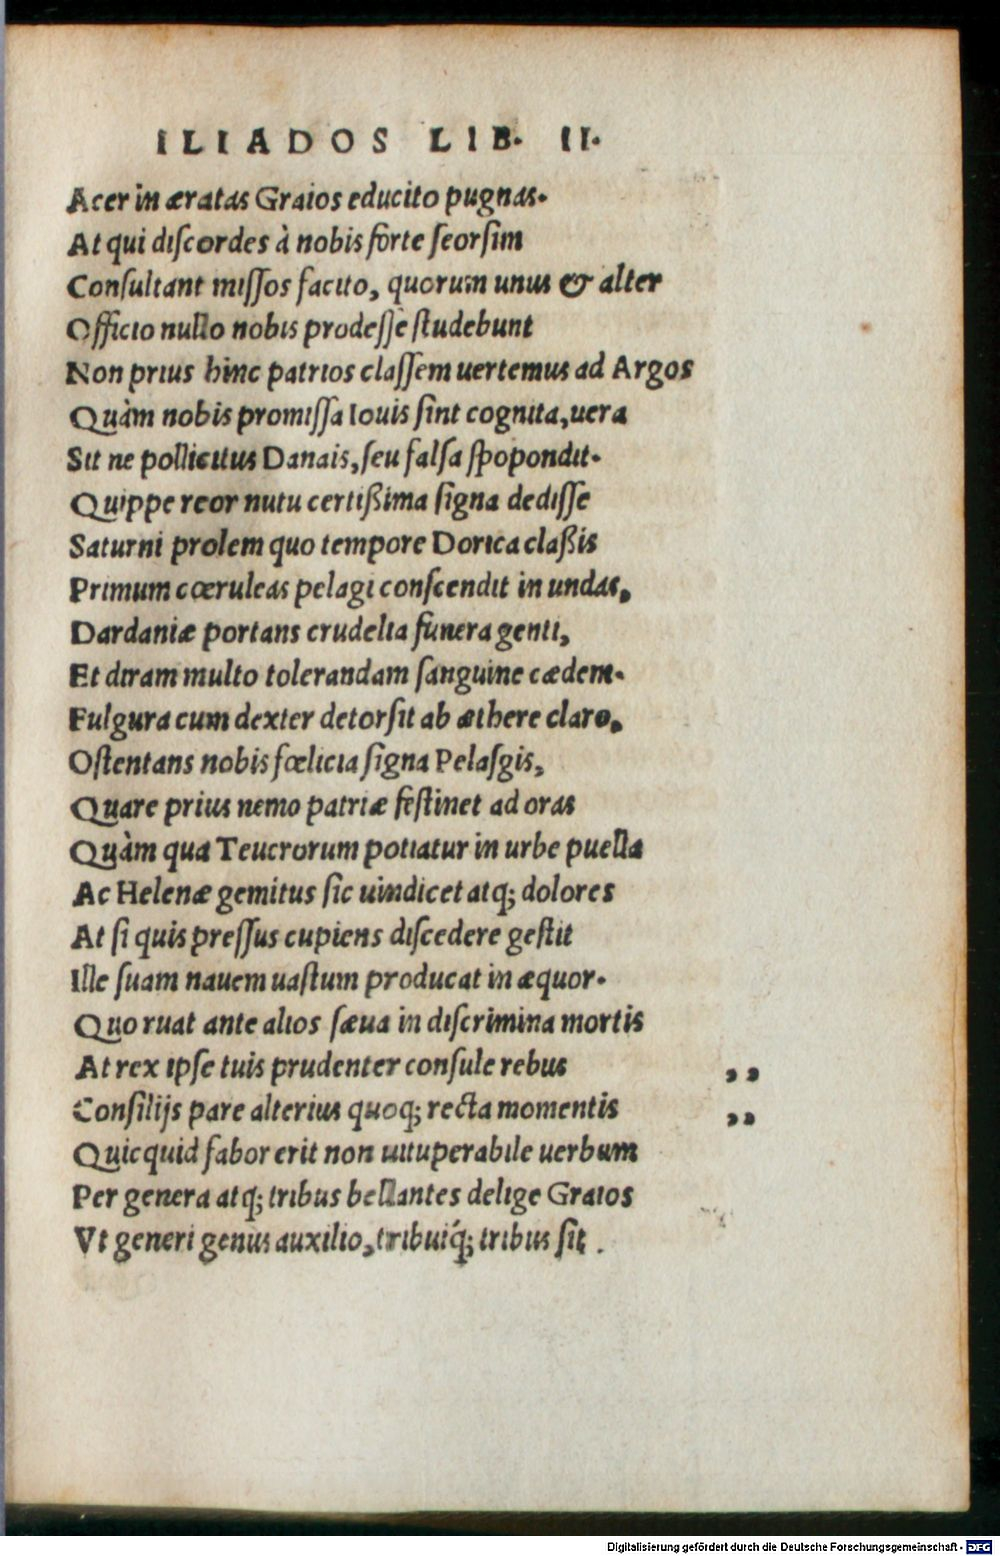 ILIADOS LIB. II.
Acer in æratas Graios educito pugnas.
At qui diſcordes à nobis forte ſeorſim
Conſultant miſſos facito, quorum unus & alter
Officio nullo nobis prodeſſe ſtudebunt
Non prius hinc patrios claſſem uertemus ad Argos
Quàm nobis promiſſa Iouis ſint cognita, uera
Sit ne pollicitus Danais, ſeu falſa ſpopondit.
Quippe reor nutu certißima ſigna dediſſe
Saturni prolem quo tempore Dorica claßis
Primum cœruleas pelagi conſcendit in undas,
Dardaniæ portans crudelia funera genti,
Et diram multo tolerandam ſanguine cædem.
Fulgura cum dexter detorſit ab æthere claro,
Oſtentans nobis fœlicia ſigna Pelaſgis,
Quare prius nemo patriæ feſtinet ad oras
Quàm qua Teucrorum potiatur in urbe puella
Ac Helenæ gemitus ſic uindicet atq; dolores
At ſi quis preſſus cupiens diſcedere geſtit
Ille ſuam nauem uaſtum producat in æquor.
Quo ruat ante alios ſæua in diſcrimina mortis
At rex ipſe tuis prudenter conſule rebus ,,
Conſilijs pare alterius quoq; recta momentis ,,
Quicquid fabor erit non uituperabile uerbum
Per genera atq; tribus bellantes delige Graios
Vt generi genus auxilio, tribuiq́; tribus ſit .
Digitalisierung gefördert durch die Deutsche Forschungsgemeinschaft - DFG